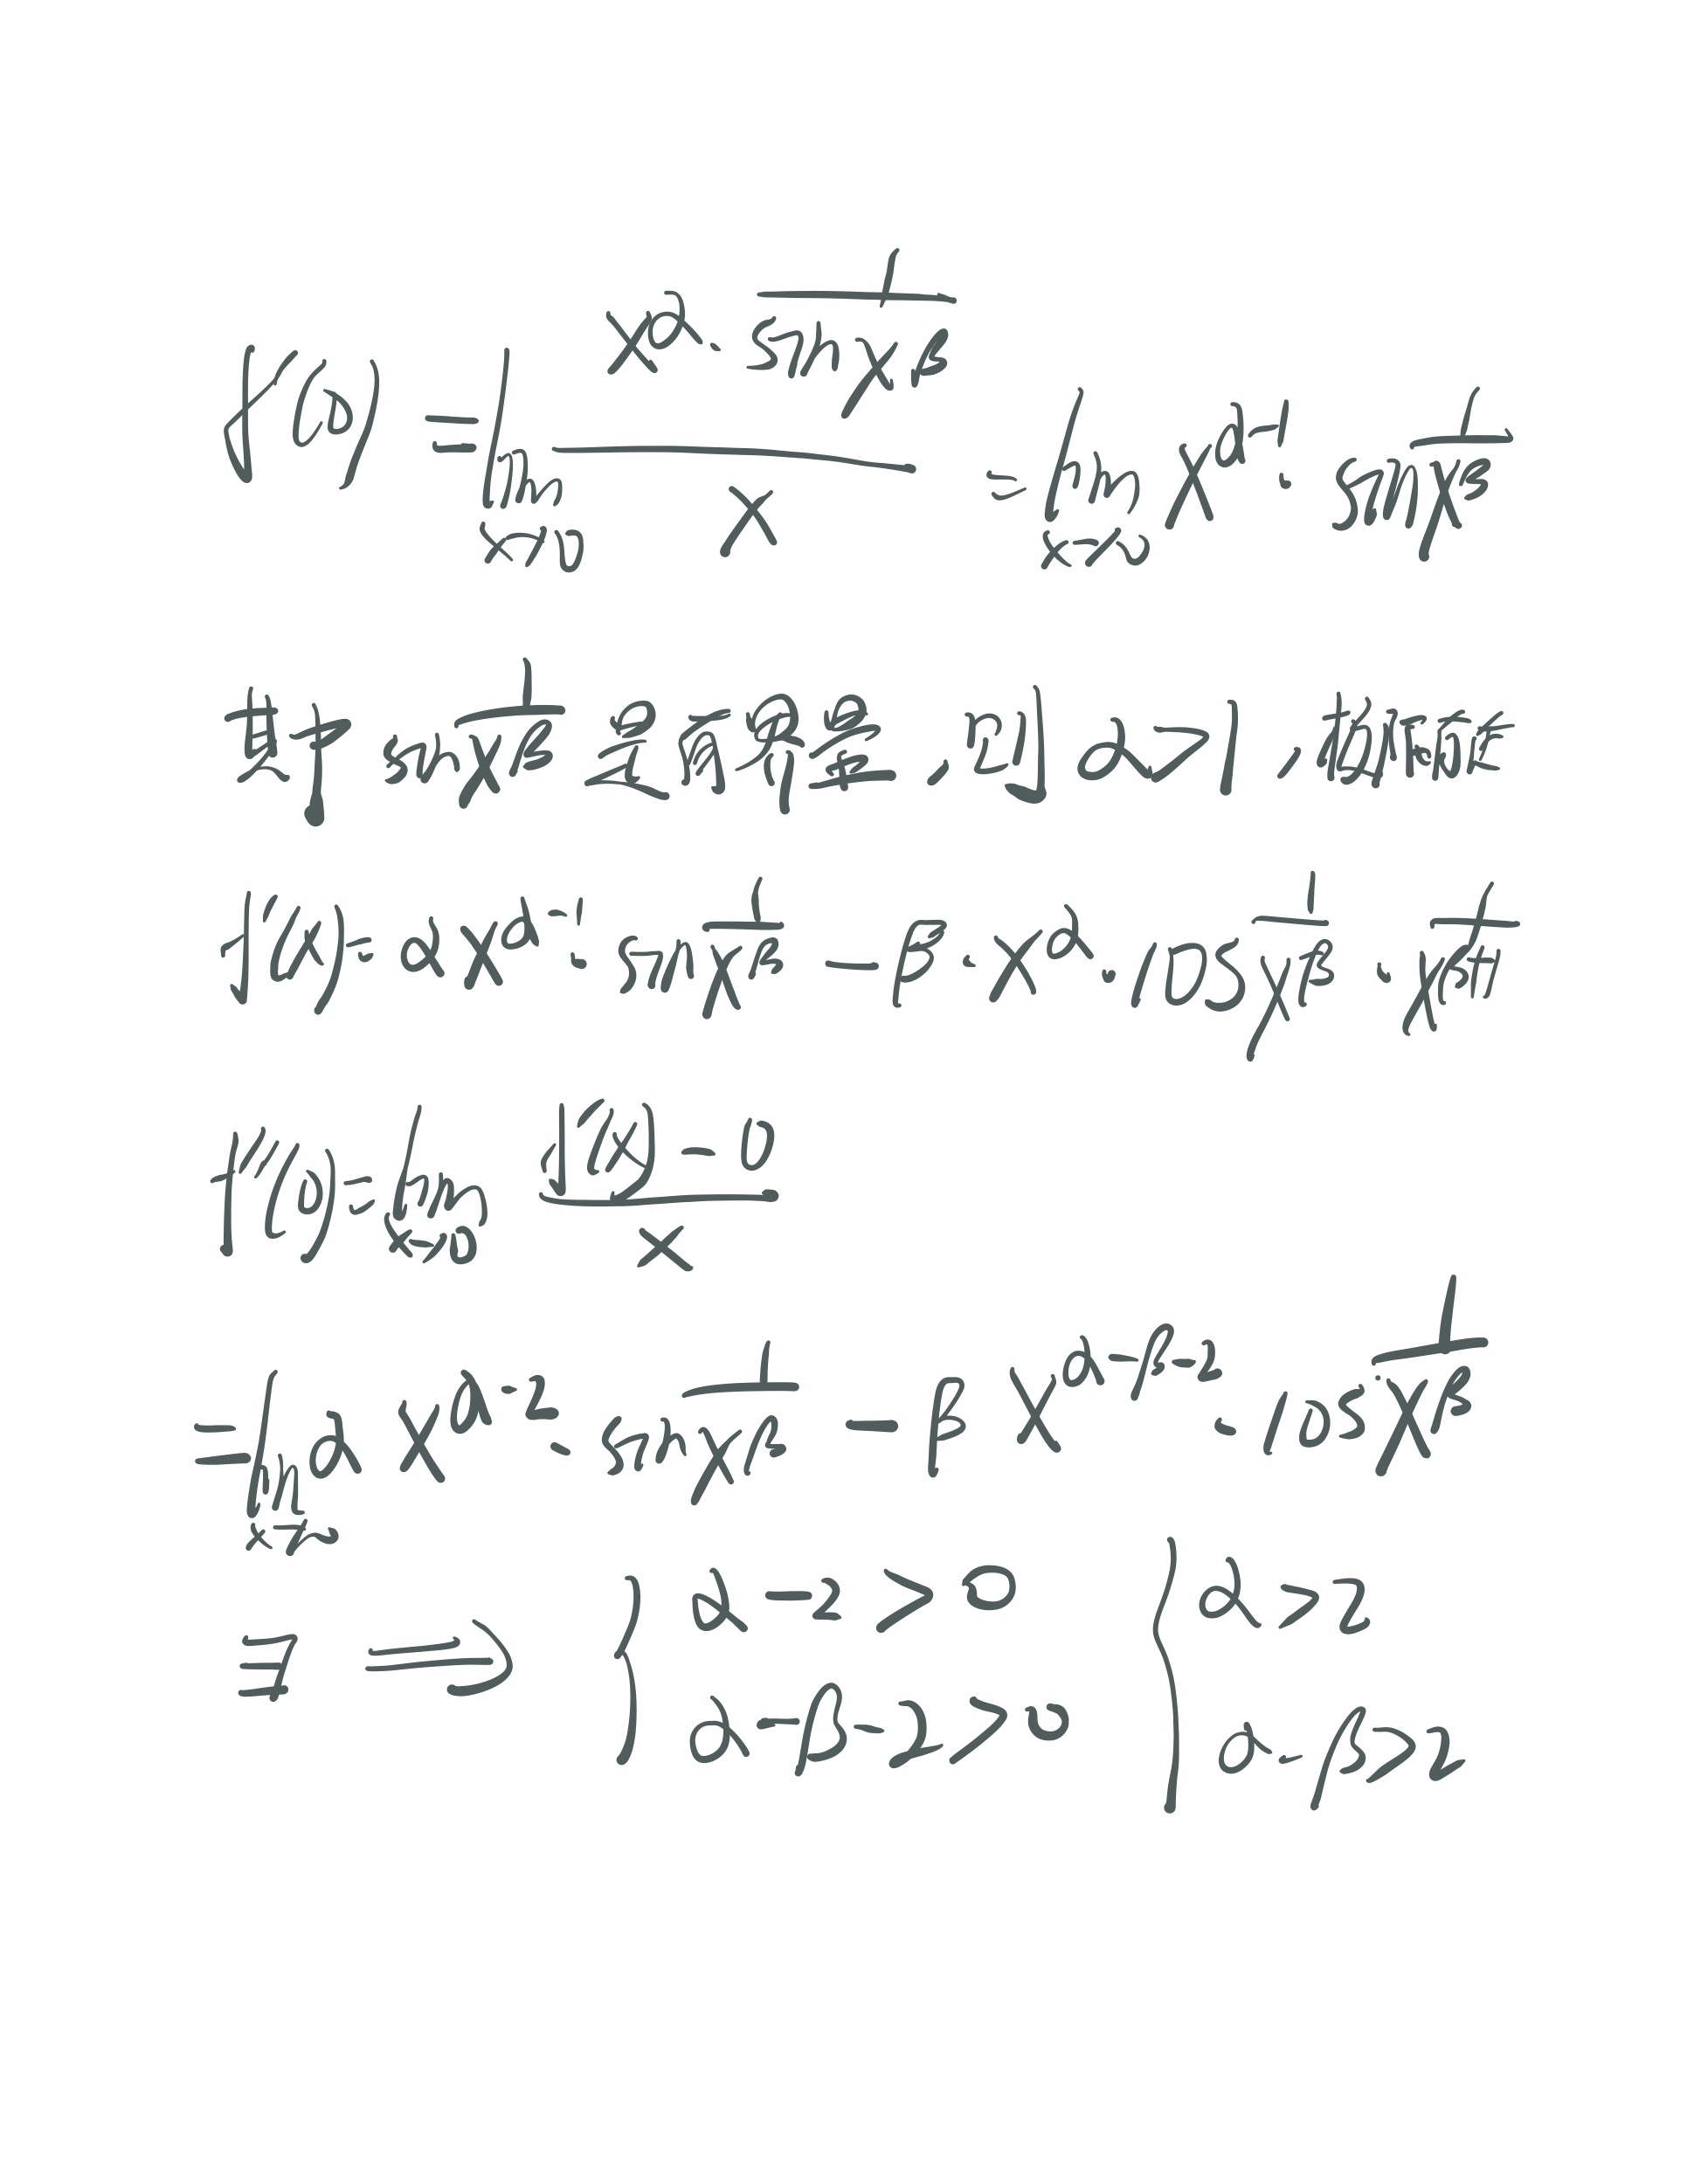 f'(0) = lim_{x→0} \frac{x^α · sin\frac{1}{x^β}}{x} = lim_{x→0} x^{α-1} · sin\frac{1}{x^β}
其中 sin\frac{1}{x^β} 是有界量, 则 α>1, 极限存在
f'(x) = αx^{α-1} · sin\frac{1}{x^β} - β · x^α · cos\frac{1}{x^β} · \frac{1}{x^{β+1}}
f''(0) = lim_{x→0} \frac{f'(x) - 0}{x}
= lim_{x→0} αx^{α-2} · sin\frac{1}{x^β} - βx^{α-β-2} · cos\frac{1}{x^β}
∃ ⇒ { α-2>0 { α>2
α-β-2>0 α-β>2